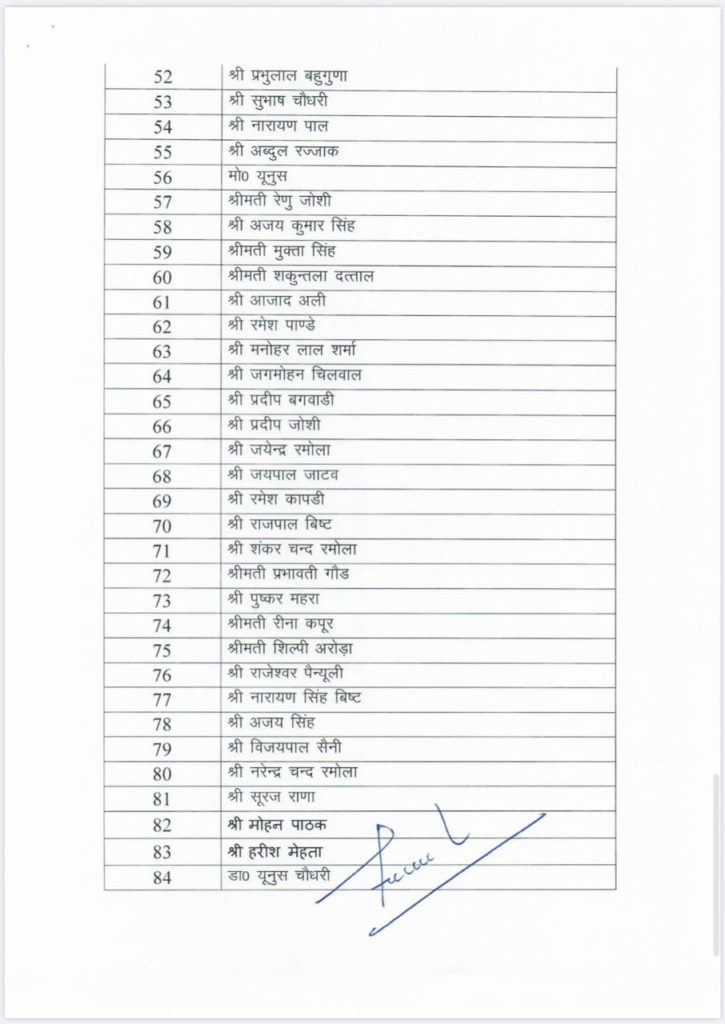 52 श्री प्रभुलाल बहुगुणा
53 श्री सुभाष चौधरी
54 श्री नारायण पाल
55 श्री अब्दुल रज्जाक
56 मो0 यूनुस
57 श्रीमती रेणु जोशी
58 श्री अजय कुमार सिंह
59 श्रीमती मुक्ता सिंह
60 श्रीमती शकुन्तला दत्ताल
61 श्री आजाद अली
62 श्री रमेश पाण्डे
63 श्री मनोहर लाल शर्मा
64 श्री जगमोहन चिलवाल
65 श्री प्रदीप बगवाडी
66 श्री प्रदीप जोशी
67 श्री जयेन्द्र रमोला
68 श्री जयपाल जाटव
69 श्री रमेश कापडी
70 श्री राजपाल बिष्ट
71 श्री शंकर चन्द रमोला
72 श्रीमती प्रभावती गौड
73 श्री पुष्कर महरा
74 श्रीमती रीना कपूर
75 श्रीमती शिल्पी अरोड़ा
76 श्री राजेश्वर पैन्यूली
77 श्री नारायण सिंह बिष्ट
78 श्री अजय सिंह
79 श्री विजयपाल सैनी
80 श्री नरेन्द्र चन्द रमोला
81 श्री सूरज राणा
82 श्री मोहन पाठक
83 श्री हरीश मेहता
84 डा0 यूनुस चौधरी